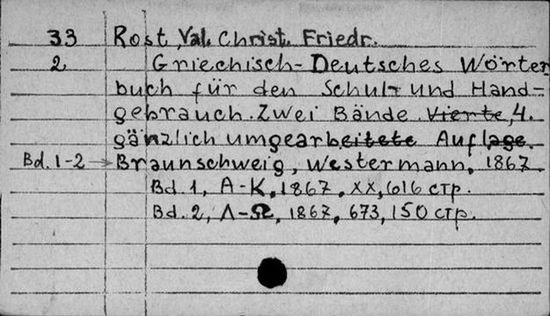 33 Rost, Val. Christ. Friedr.
2 Griechisch-Deutsches Wörter
buch für den Schul- und Hand-
gebrauch. Zwei Bände. Vierte, 4.
gänzlich umgearbeitete Auflage.
Bd. 1-2 → Braunschweig, Westermann, 1867.
Bd. 1, A-K, 1867, XX, 616 стр.
Bd. 2, Λ-Ω, 1867, 673, 150 стр.